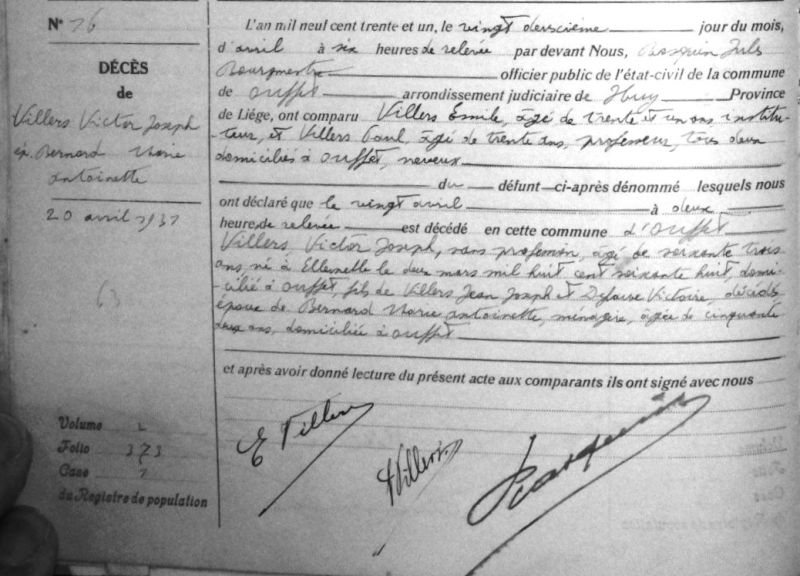 N° 16
DÉCÈS
de
Villers Victor Joseph
ép. Bernard Marie
Antoinette
20 avril 1931
63
Volume 1
Folio 373
Case 7
du Registre de population
L'an mil neuf cent trente et un, le vingt deuxième jour du mois,
d'avril à six heures de relevée par devant Nous, Jules
Bourgmestre officier public de l'état-civil de la commune
de Ouffet arrondissement judiciaire de Huy Province
de Liége, ont comparu Villers Emile, âgé de trente et un ans, institu-
teur, et Villers Paul, âgé de trente ans, professeur, tous deux
domiciliés à Ouffet, neveux
du défunt ci-après dénommé lesquels nous
ont déclaré que le vingt avril à deux
heures de relevée est décédé en cette commune d'Ouffet
Villers Victor Joseph, sans profession, âgé de soixante trois
ans, né à Ellemelle le deux mars mil huit cent soixante huit, domi-
-cilié à Ouffet, fils de Villers Jean Joseph et Victoire, décédés
époux de Bernard Marie Antoinette, ménagère, âgée de cinquante
deux ans, domiciliée à Ouffet
et après avoir donné lecture du présent acte aux comparants ils ont signé avec nous
E Villers
Villers